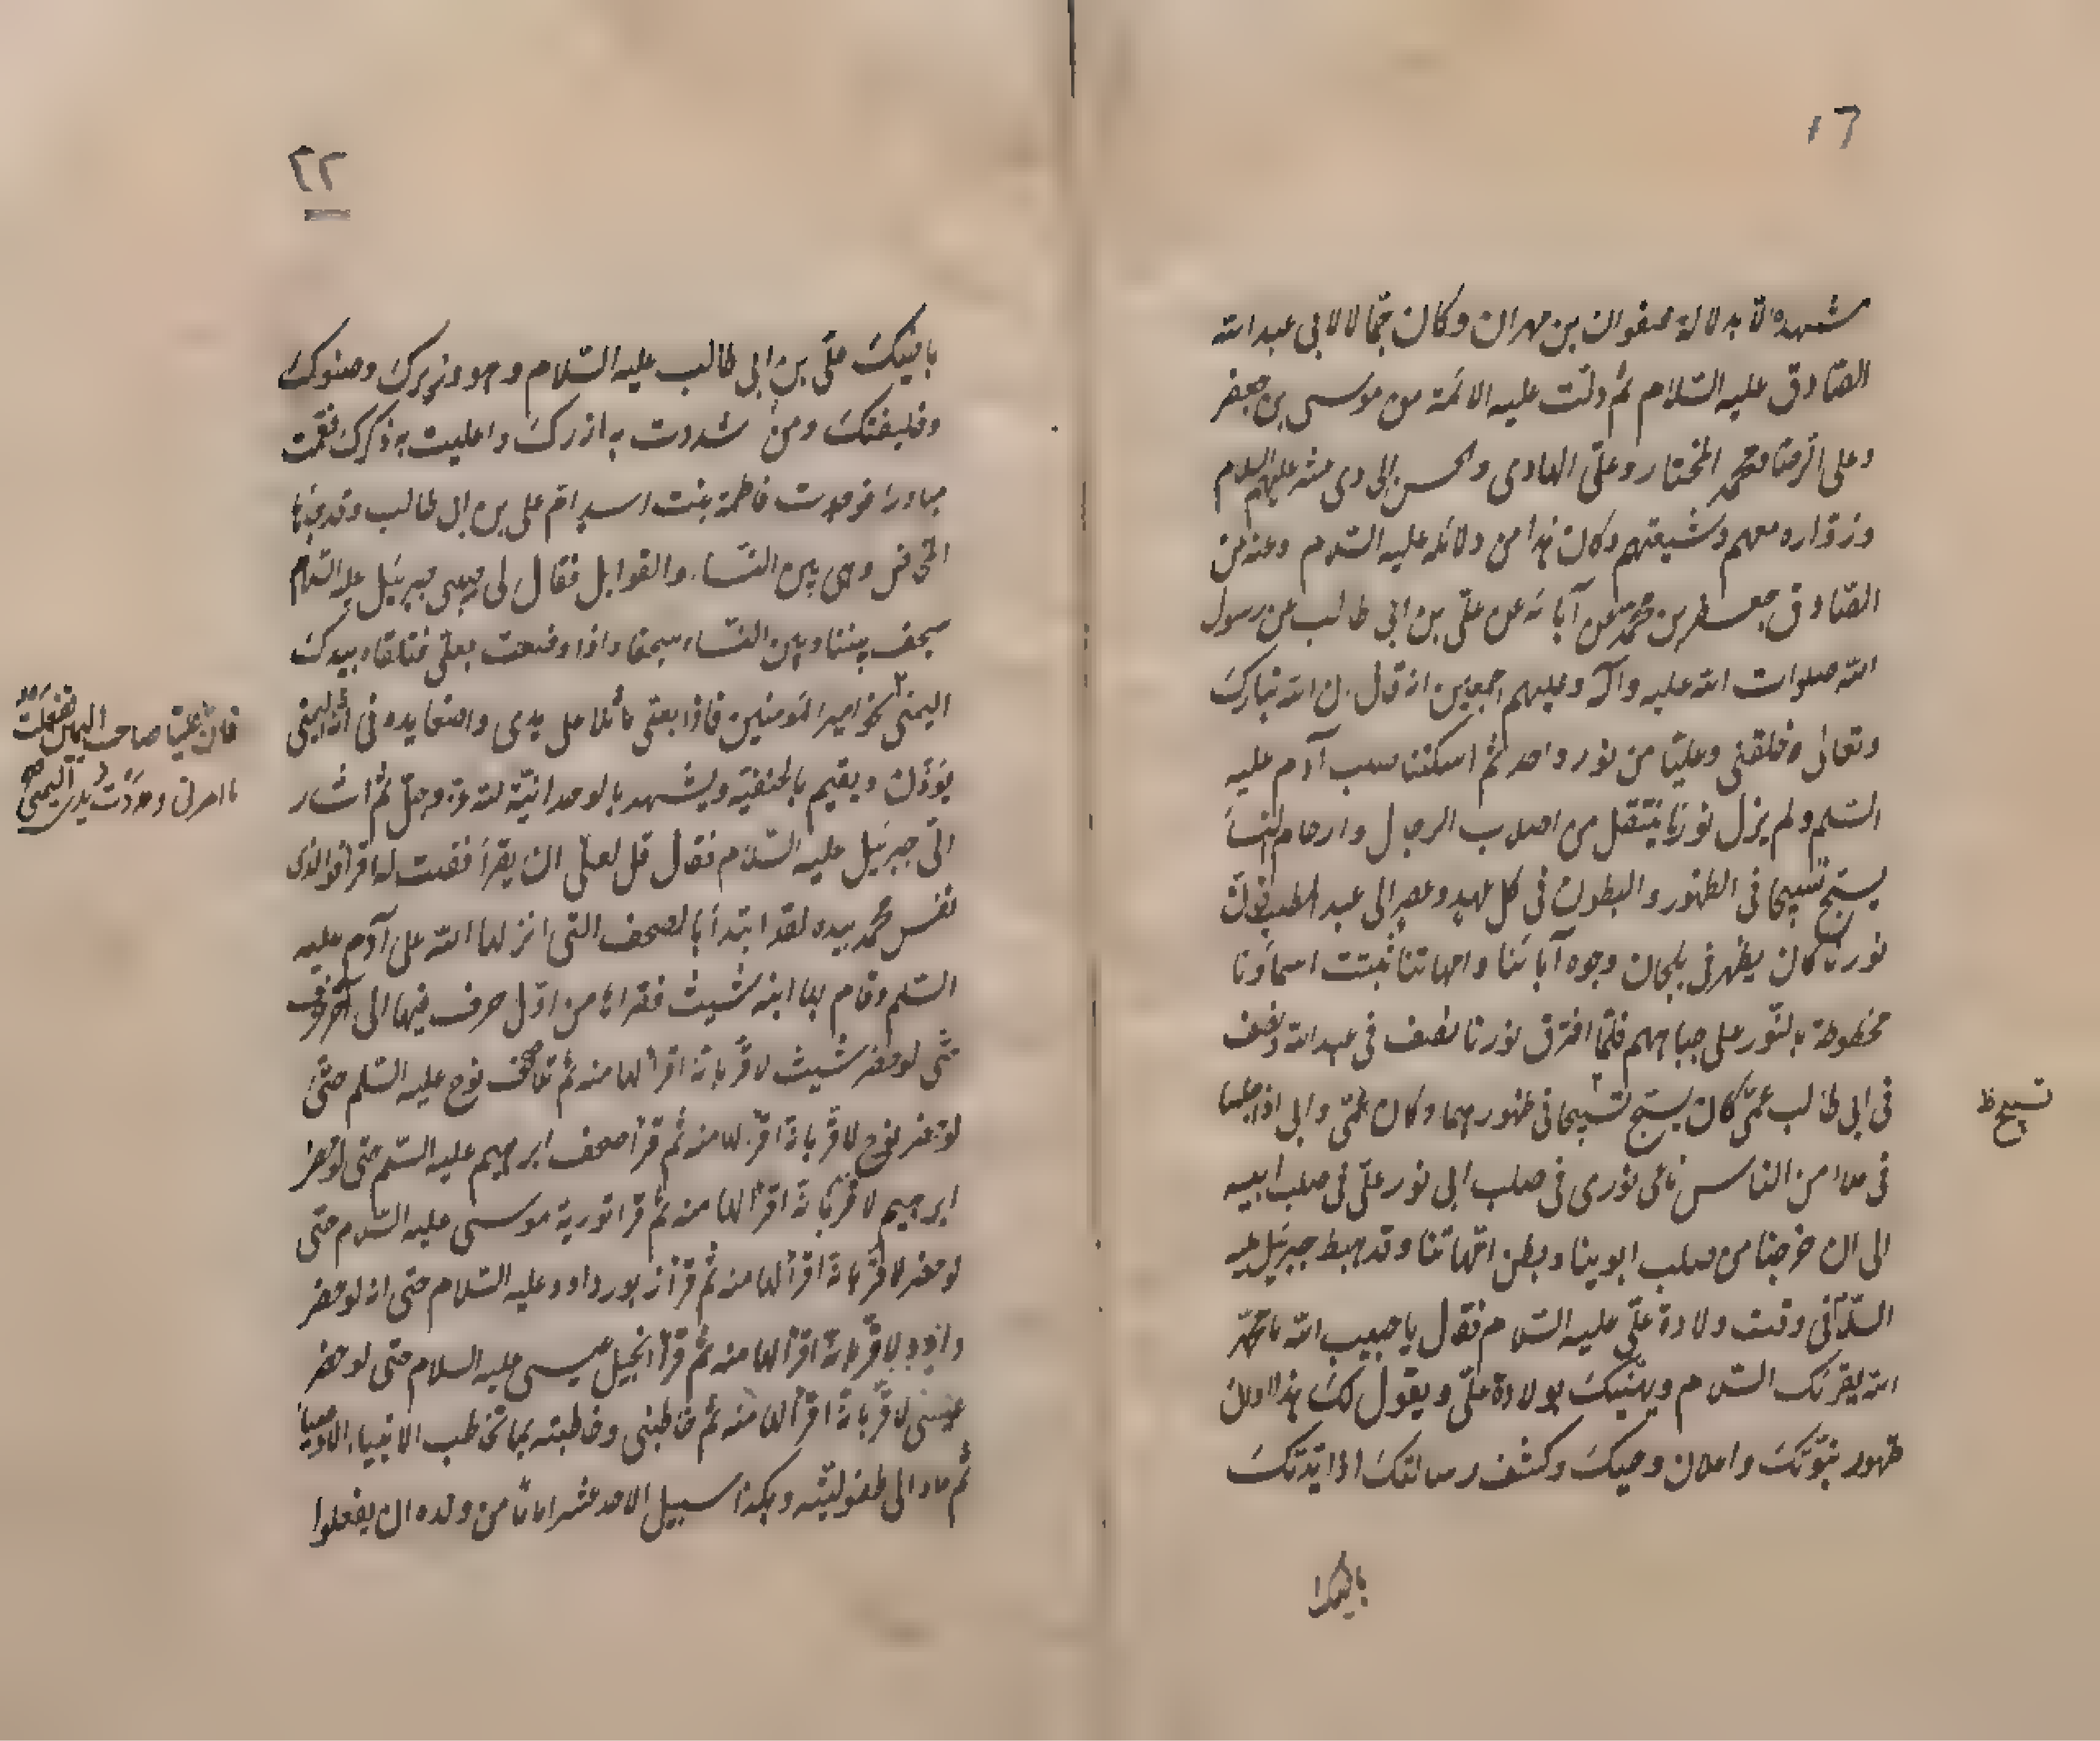 ١٦
مشهده الا بدلالة صفوان بن مهران وكان جمّالا لابى عبد الله
الصّادق عليه السّلام ثم دلّت عليه الائمّة من موسى بن جعفر
وعلى الرضا ومحمد المختار وعلّى الهادى والحسن الى دى عشر عليهم السلام
وزوّاره معهم وشيعتهم وكان هذا من دلائله عليه السّلام وعنه عن
الصّادق جعفر بن محمّد عن آبائه عن علّى بن ابى طالب عن رسول
الله صلوات الله عليه وآله وعليهم اجمعين انه قال ان الله تبارك
وتعالى خلقنى وعليّا من نور واحد ثم اسكننا صلب آدم عليه
السّلم ولم يزل نورنا ينتقل من اصلاب الرجال وارحام النّساء
يسبّح تسبيحا فى الظهور والبطون فى كل عهد وعصر الى عبد المطلب وانّ
نورنا كان يظهر فى بلجان وجوه آبائنا وامهاتنا ثبتت اسماؤنا
مخطوطة بالنّور على جباههم فلمّا افترق نورنا نصف فى عبد الله ونصف
فى ابى طالب عمّى كان يسبّح تسبيحا فى ظهورهما وكان عمّى وابى اذا جلسا
تسبيح ظ
فى ملاء من الناس ناجى نورى فى صلب ابى نور علّى فى صلب ابيه
الى ان خرجنا من صلب ابوينا وبطن امّهاتنا وقد هبط جبرئيل عليه
السّلم فى وقت ولادة علّى عليه السّلام فقال يا حبيب الله يا محمّد
الله يقرئك السّلام ويهنّيك بولادة علّى ويقول لك هذا اوان
ظهور نبوّتك واعلان وحيك وكشف رسالتك اذا يّدتك
باخيك
٢٢
باخيك علّى بن ابى طالب عليه السّلام وهو وزيرك وصنوك
وخليفتك ومن شددت به ازرك واعليت به ذكرك فقمت
مبادرا فوجدت فاطمة بنت اسد امّ على بن ابى طالب وقد جاءها
المخاض وهى بين النّساء والقوابل فقال لى حبيبى جبرئيل عليه السّلام
سجف بيننا وبين النّساء سجفا واذا وضعت بعلّى فتلقاه بيدك
اليمنى نحو امير المؤمنين فاذا بعلّى مائلا على يدى واضعا يده فى اذنه اليمنى
فانّ عليّا صاحب اليمين ففعلت
ما امرنى ومددت يدى اليمنى
يؤذّن ويقيم بالحنفيّة ويشهد بالوحدانيّة لله عزّ وجلّ ثم اشار
الىّ جبرئيل عليه السّلام فقال قل لعلى ان يقرأ فقلت له اقرأ فو الذى
نفس محمّد بيده لقد ابتدأ بالصحف التى انزلها الله على آدم عليه
السّلم وقام بها ابنه شيث فقرأها من اوّل حرف فيها الى آخر حرف
حتّى لو حضر شيث لاقرّ بانّه اقرأ لها منه ثم تلا صحف نوح عليه السّلم حتّى
لو حضر نوح لاقرّ بانّه اقرأ لها منه ثم قرأ صحف ابرهيم عليه السّلم حتى لو حضر
ابرهيم لاقرّ بانّه اقرأ لها منه ثم قرا تورية موسى عليه السّلام حتى
لو حضر لاقرّ بانّه اقرأ لها منه ثم قرأ زبور داود عليه السّلام حتى انه لو حضر
داود لاقرّ بانّه اقرأ لها منه ثم قرأ انجيل عيسى عليه السلام حتى لو حضر
عيسى لاقرّ بانّه اقرأ لها منه ثم خاطبنى وخاطبته بما تخاطب الانبياء الاوصياء
ثم عاد الى طفوليّته وهكذا سبيل الاحد عشر اماما من ولده ان يفعلوا